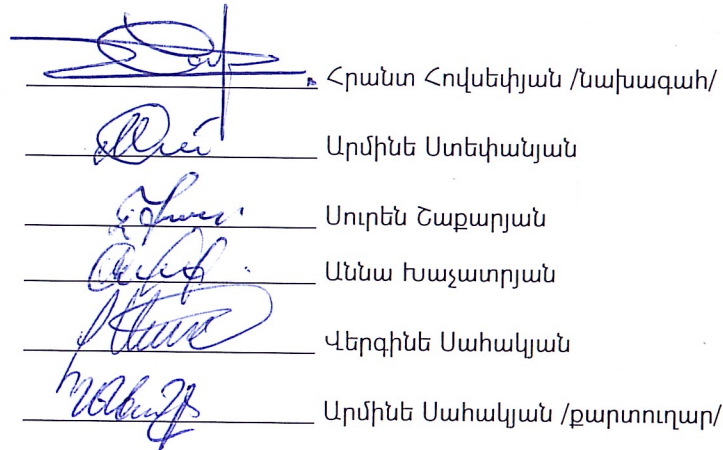 Հրանտ Հովսեփյան /նախագահ/
Արմինե Ստեփանյան
Սուրեն Շաքարյան
Աննա Խաչատրյան
Վերգինե Սահակյան
Արմինե Սահակյան /քարտուղար/